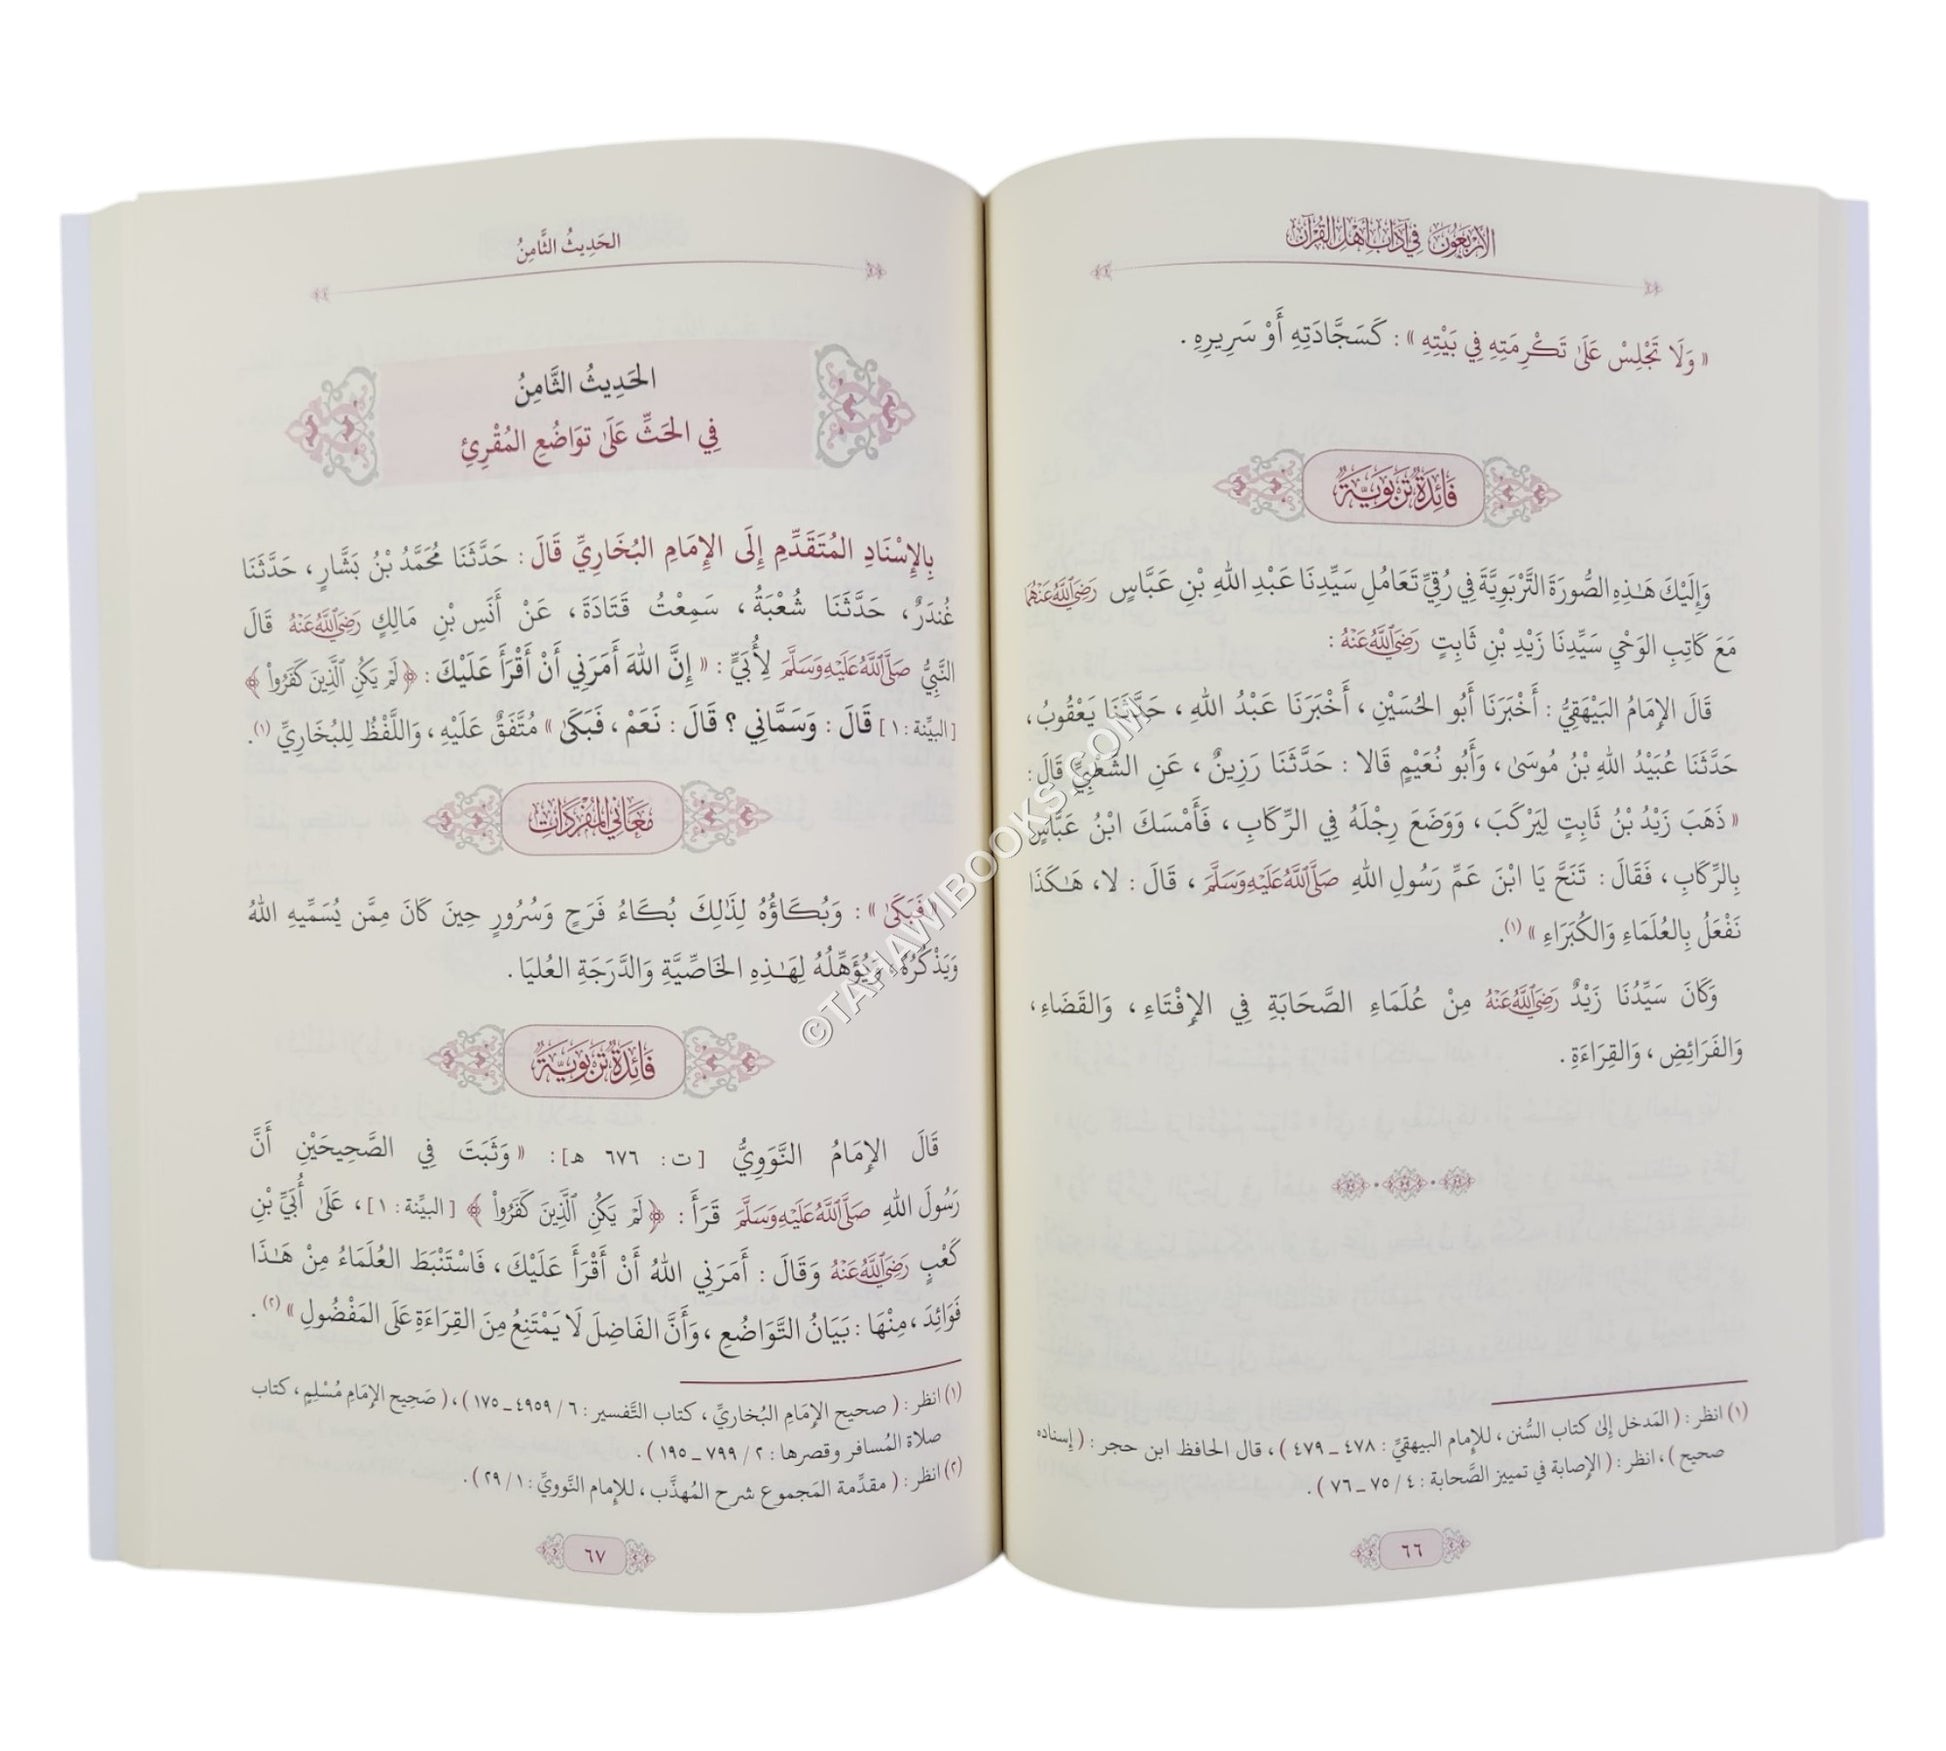 الأَرْبَعُونَ فِي آدَابِ أَهْلِ القُرْآنِ
« وَلَا تَجْلِسْ عَلَىٰ تَكْرِمَتِهِ فِي بَيْتِهِ » : كَسَجَّادَتِهِ أَوْ سَرِيرِهِ .
فَائِدَةٌ تَرْبَوِيَّةٌ
وَإِلَيْكَ هَـٰذِهِ الصُّورَةَ التَّرْبَوِيَّةَ فِي رُقِيِّ تَعَامُلِ سَيِّدِنَا عَبْدِ اللهِ بْنِ عَبَّاسٍ رَضِيَ ٱللَّهُ عَنْهُمَا
مَعَ كَاتِبِ الوَحْيِ سَيِّدِنَا زَيْدِ بْنِ ثَابِتٍ رَضِيَ ٱللَّهُ عَنْهُ :
قَالَ الإِمَامُ البَيْهَقِيُّ : أَخْبَرَنَا أَبُو الحُسَيْنِ ، أَخْبَرَنَا عَبْدُ اللهِ ، حَدَّثَنَا يَعْقُوبُ ،
حَدَّثَنَا عُبَيْدُ اللهِ بْنُ مُوسَىٰ ، وَأَبُو نُعَيْمٍ قَالا : حَدَّثَنَا رَزِينٌ ، عَنِ الشَّعْبِيِّ قَالَ :
« ذَهَبَ زَيْدُ بْنُ ثَابِتٍ لِيَرْكَبَ ، وَوَضَعَ رِجْلَهُ فِي الرِّكَابِ ، فَأَمْسَكَ ابْنُ عَبَّاسٍ
بِالرِّكَابِ ، فَقَالَ : تَنَحَّ يَا ابْنَ عَمِّ رَسُولِ اللهِ صَلَّى ٱللَّهُ عَلَيْهِ وَسَلَّمَ ، قَالَ : لا ، هَـٰكَذَا
نَفْعَلُ بِالعُلَمَاءِ وَالكُبَرَاءِ » (١).
وَكَانَ سَيِّدُنَا زَيْدٌ رَضِيَ ٱللَّهُ عَنْهُ مِنْ عُلَمَاءِ الصَّحَابَةِ فِي الإِفْتَاءِ ، وَالقَضَاءِ ،
وَالفَرَائِضِ ، وَالقِرَاءَةِ .
(١) انظر : ( المَدخل إلىٰ كتاب السُّنن ، للإمام البيهقيِّ : ٤٧٨ ـ ٤٧٩ ) ، قال الحافظ ابن حجر : ( إسناده
صحيح ) ، انظر : ( الإصابة في تمييز الصَّحابة : ٤ / ٧٥ ـ ٧٦ ) .
٦٦
الحَدِيثُ الثَّامِنُ
الحَدِيثُ الثَّامِنُ
فِي الحَثِّ عَلَىٰ تَوَاضُعِ المُقْرِئِ
بِالإِسْنَادِ المُتَقَدِّمِ إِلَى الإِمَامِ البُخَارِيِّ قَالَ : حَدَّثَنَا مُحَمَّدُ بْنُ بَشَّارٍ ، حَدَّثَنَا
غُندَرٌ ، حَدَّثَنَا شُعْبَةُ ، سَمِعْتُ قَتَادَةَ ، عَنْ أَنَسِ بْنِ مَالِكٍ رَضِيَ ٱللَّهُ عَنْهُ قَالَ
النَّبِيُّ صَلَّى ٱللَّهُ عَلَيْهِ وَسَلَّمَ لِأُبَيٍّ : « إِنَّ اللهَ أَمَرَنِي أَنْ أَقْرَأَ عَلَيْكَ : ﴿ لَمْ يَكُنِ ٱلَّذِينَ كَفَرُوا۟ ﴾
[ البيِّنة : ١ ] قَالَ : وَسَمَّانِي ؟ قَالَ : نَعَمْ ، فَبَكَىٰ » مُتَّفَقٌ عَلَيْهِ ، وَاللَّفْظُ لِلبُخَارِيِّ (١).
مَعَانِي المُفْرَدَاتِ
« فَبَكَىٰ » : وَبُكَاؤُهُ لِذَٰلِكَ بُكَاءُ فَرَحٍ وَسُرُورٍ حِينَ كَانَ مِمَّن يُسَمِّيهِ اللهُ
وَيَذْكُرُهُ ، وَيُؤَهِّلُهُ لِهَـٰذِهِ الخَاصِّيَّةِ وَالدَّرَجَةِ العُليَا .
فَائِدَةٌ تَرْبَوِيَّةٌ
قَالَ الإِمَامُ النَّوَوِيُّ [ ت : ٦٧٦ هـ ] : « وَثَبَتَ فِي الصَّحِيحَيْنِ أَنَّ
رَسُولَ اللهِ صَلَّى ٱللَّهُ عَلَيْهِ وَسَلَّمَ قَرَأَ : ﴿ لَمْ يَكُنِ ٱلَّذِينَ كَفَرُوا۟ ﴾ [ البيِّنة : ١ ] ، عَلَىٰ أُبَيِّ بْنِ
كَعْبٍ رَضِيَ ٱللَّهُ عَنْهُ وَقَالَ : أَمَرَنِي اللهُ أَنْ أَقْرَأَ عَلَيْكَ ، فَاسْتَنْبَطَ العُلَمَاءُ مِنْ هَـٰذَا
فَوَائِدَ ، مِنْهَا : بَيَانُ التَّوَاضُعِ ، وَأَنَّ الفَاضِلَ لَا يَمْتَنِعُ مِنَ القِرَاءَةِ عَلَى المَفْضُولِ » (٢) .
(١) انظر : ( صحيح الإمَامِ البُخاريِّ ، كتاب التَّفسير : ٦ / ٤٩٥٩ ـ ١٧٥ ) ، ( صَحِيح الإمَامِ مُسْلِمٍ ، كتاب
صلاة المُسافر وقصرها : ٢ / ٧٩٩ ـ ١٩٥ ) .
(٢) انظر : ( مقدِّمة المَجموع شرح المُهذَّب ، للإمام النَّوويِّ : ١ / ٢٩ ) .
٦٧
©TAHAWIBOOKS.COM